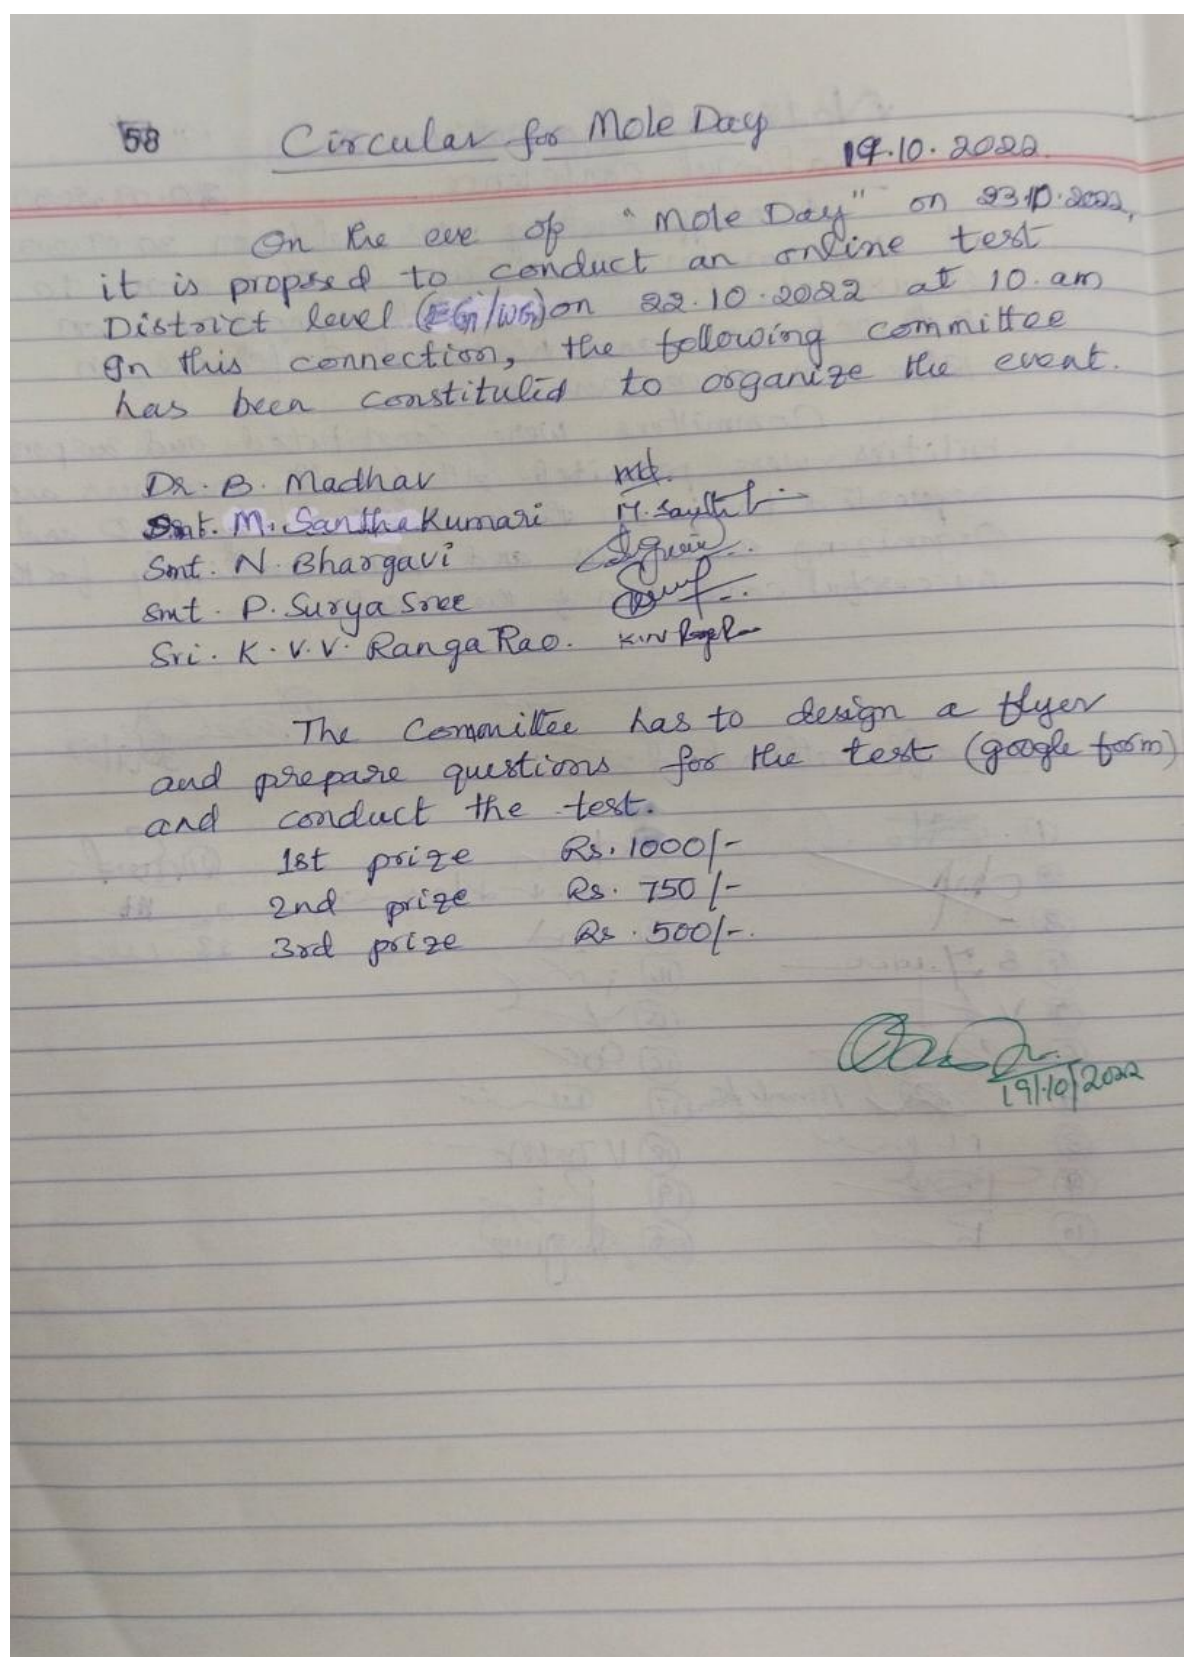 58 Circular for Mole Day
19.10.2022.
On the eve of "Mole Day" on 23.10.2022,
it is propsed to conduct an online test
District level (EG/WG) on 22.10.2022 at 10.am
In this connection, the following committee
has been constituted to organize the event.
Dr. B. Madhav
Smt. M. Santha Kumari
Smt. N. Bhargavi
Smt. P. Surya Sree
Sri. K.V.V. Ranga Rao.
The Committee has to design a flyer
and prepare questions for the test (google form)
and conduct the test.
1st prize Rs. 1000/-
2nd prize Rs. 750/-
3rd prize Rs. 500/-.
19/10/2022